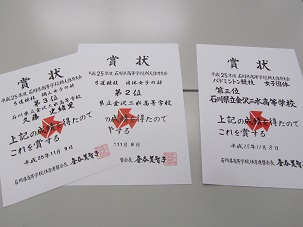 賞状
平成25年度 石川県高等学校新人体育大会
弓道競技 個人女子の部
第3位
上記の成績を得たので
これを賞する
平成25年11月9日
石川県高等学校体育連盟会長
賞状
平成25年度 石川県高等学校新人体育大会
弓道競技 団体女子の部
第2位
県立金沢二水高等学校
の成績を得たので
賞する
11月9日
石川県高等学校体育連盟会長
賞状
平成25年度 石川県高等学校新人体育大会
バドミントン競技 女子団体
第三位
石川県立金沢二水高等学校
上記の成績を得たので
これを賞する
平成25年11月8日
石川県高等学校体育連盟会長